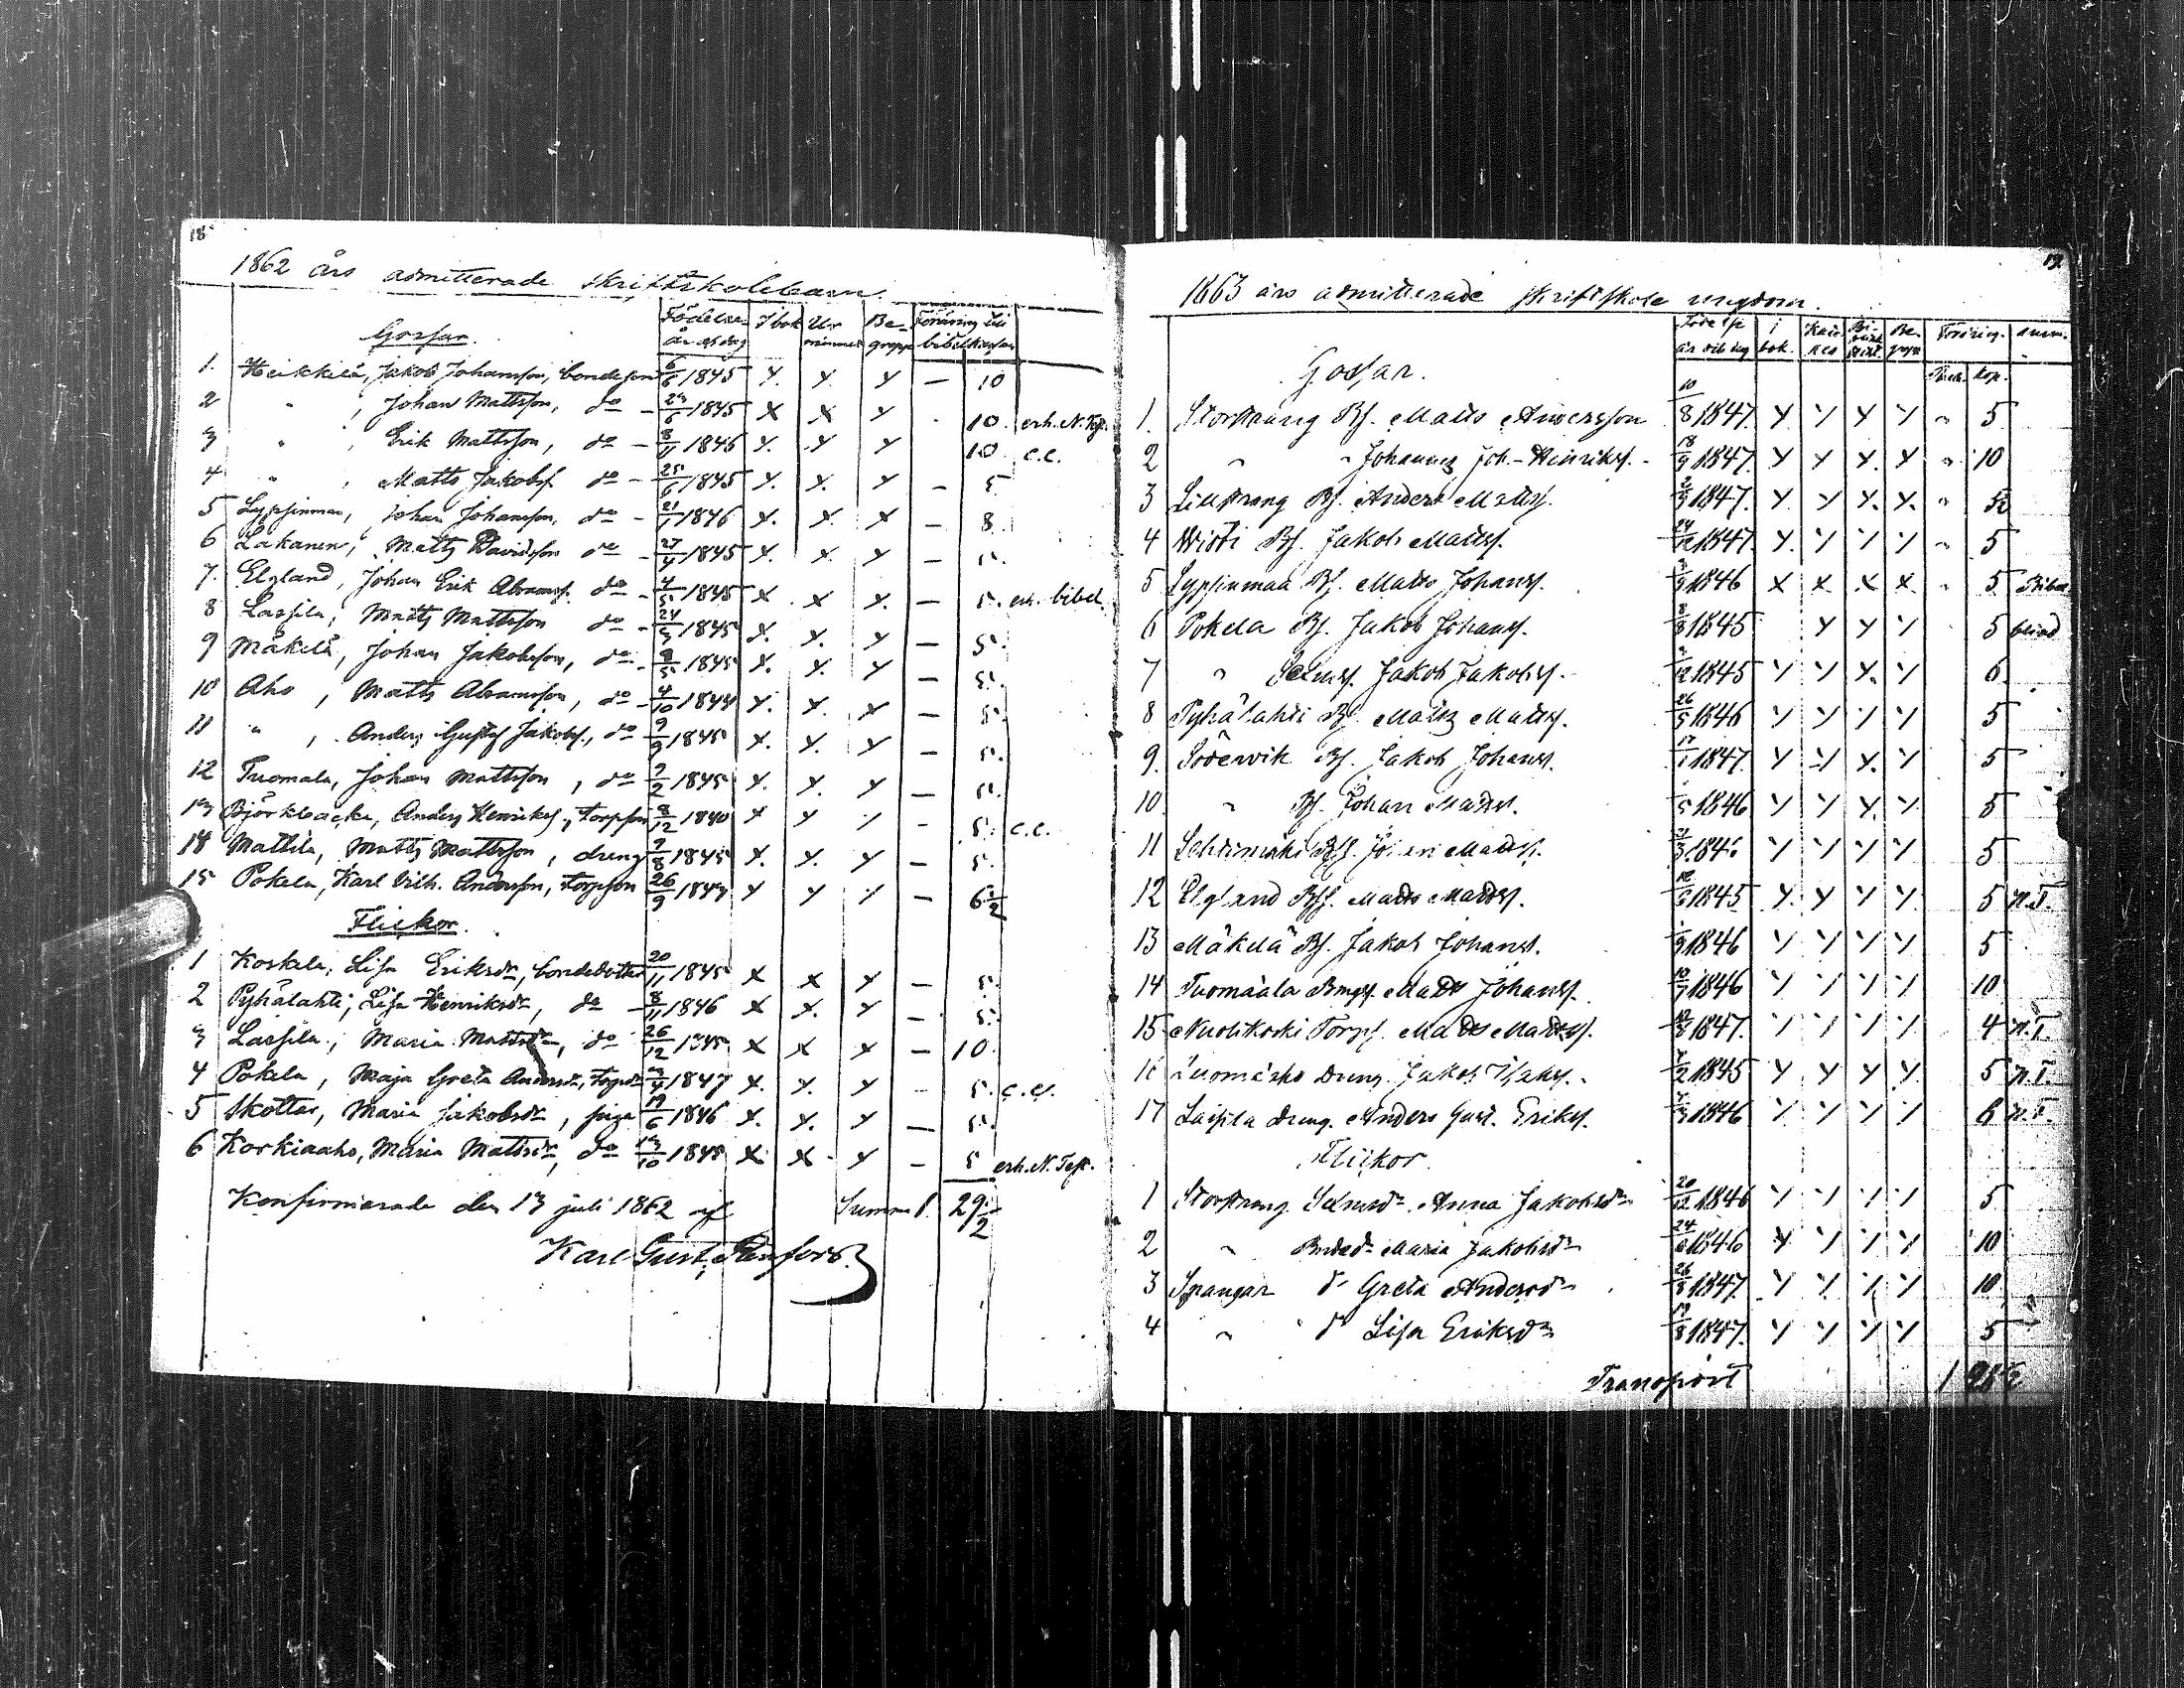 18
1862 års admitterade Skriftskolebarn.
Gossar. Födelse- år och dag I bok Ur minnet Be- grepp Föräring till bibelkassan
1. Heikkilä, Jakob Johansson, bondeson 6/6 1845 Y. Y. Y — 10
2 " , Johan Mattsson, do - 23/6 1845 X X Y 10 erh. N. Test.
3 " , Erik Mattsson, do - 8/11 1846 Y. Y Y 10 c.c.
4 " , Matts Jakobss. do - 25/6 1845 Y. Y. Y — 5
5 Lyppinmaa, Johan Johansson, do - 21/1 1846 X. X. X — 8.
6 Lakanen, Matts Davidsson do - 27/4 1845 X. X. Y — 5.
7. Elgland, Johan Erik Abramss. do - 4/5 1845 X X Y. — 5. erh. bibel
8 Lassila, Matts Mattsson do - 24/3 1845 X. X. Y — 5.
9 Mäkelä, Johan Jakobsson, do - 8/5 1845 X. X. Y — 5.
10 Aho , Matts Abramsson, do - 4/10 1844 Y. Y. X — 5.
11 " , Anders Gustaf Jakobs., do 9/9 1845 X. Y. Y — 5.
12 Tuomala, Johan Mattsson , do 9/2 1845 Y. Y. Y — 5.
13 Björkbacka, Anders Henrikss., torpson 8/12 1840 Y Y Y — 5. c.c.
14 Mattila, Matts Mattsson, dreng 9/8 1845 Y. Y. Y — 5.
15 Pokela, Karl Vilh. Andersson, torpson 26/9 1847 Y Y Y — 6 1/2
Flickor.
1 Koskela, Lisa Eriksdr, bondedotter 20/11 1845 X X Y — 5.
2 Pyhälahti, Lisa Henriksdr, do - 8/11 1846 X X. Y — 5.
3 Lassila, Maria Mattsdr, do 26/12 1845 X X Y — 10.
4 Pokela, Maja Greta Andersdr, torpdr 1847 X. Y. Y — 5. c.c.
5 Skottar, Maria Jakobsdr, piga 19/6 1846 Y. Y. Y — 5.
6 Korkiaaho, Maria Mattsdr, do 23/10 1845 X X Y — 5 erh. N. Test.
Konfirmerade den 13 juli 1862 af Summa 1. 29 1/2
Karl Gust. Stenfors.
19.
1863 års admitterade skriftskole ungdom.
Gossar. Födelse år och dag i bok. Föräring. anm.
Rub. kop.
1. Storstrang Bs. Matts Andersson 10/8 1847. Y Y Y Y " 5
2 " " Johannes Joh.-Henrikss. - 18/9 1847. Y Y Y. Y " 10
3 Lillstrang Bs. Anders Mattss. 1847. Y Y Y. Y. "
4 Wisti Bs. Jakob Mattss. 24/12 1847. Y. Y Y Y " 5
5 Lyppinmaa Bs. Matts Johanss. 3/9 1846 X X X X " 5 Bibel
6 Pokela Bs. Jakob Johanss. 1845 Y Y Y 5 blind
7 " Jakob Jakobss. 1845 Y Y Y. Y 6
8 Pyhälahti Bs. Matts Mattss. 26/5 1846 Y Y Y Y 5
9. Södervik Bs. Jakob Johanss. 17/1 1847. Y Y Y. Y 5
10. " Bs. Johan Mattss. 1846 Y Y Y. Y 5
11 Lehtimäki Johan Mattss. Y Y Y Y 5
12 Elgland Matts Mattss. 1845 Y. Y Y Y 5 N.T.
13 Mäkelä Bs. Jakob Johanss. 1846 Y Y Y Y 5
14 Tuomaala Matts Johanss. 1846 Y Y Y Y 10
15 Nuolikoski Torps. Matts Mattss. 1847. Y Y Y Y 4 N.T.
16 dreng. Jakob 1845 Y Y Y Y. 5 N.T.
17 Lassila dreng. Anders Gust. Erikss. 1846 Y Y Y Y 6 N.T.
Flickor.
1 Storstrang Anna Jakobsdr 20/12 1846 Y Y Y Y 5
2 " Maria Jakobsdr 1846 Y Y Y Y 10
3 Spangar dr Greta Andersdr 26/8 1847. Y Y. Y Y 10
4 " " dr Lisa Eriksdr 19/8 1847. Y Y Y Y 5
Transport